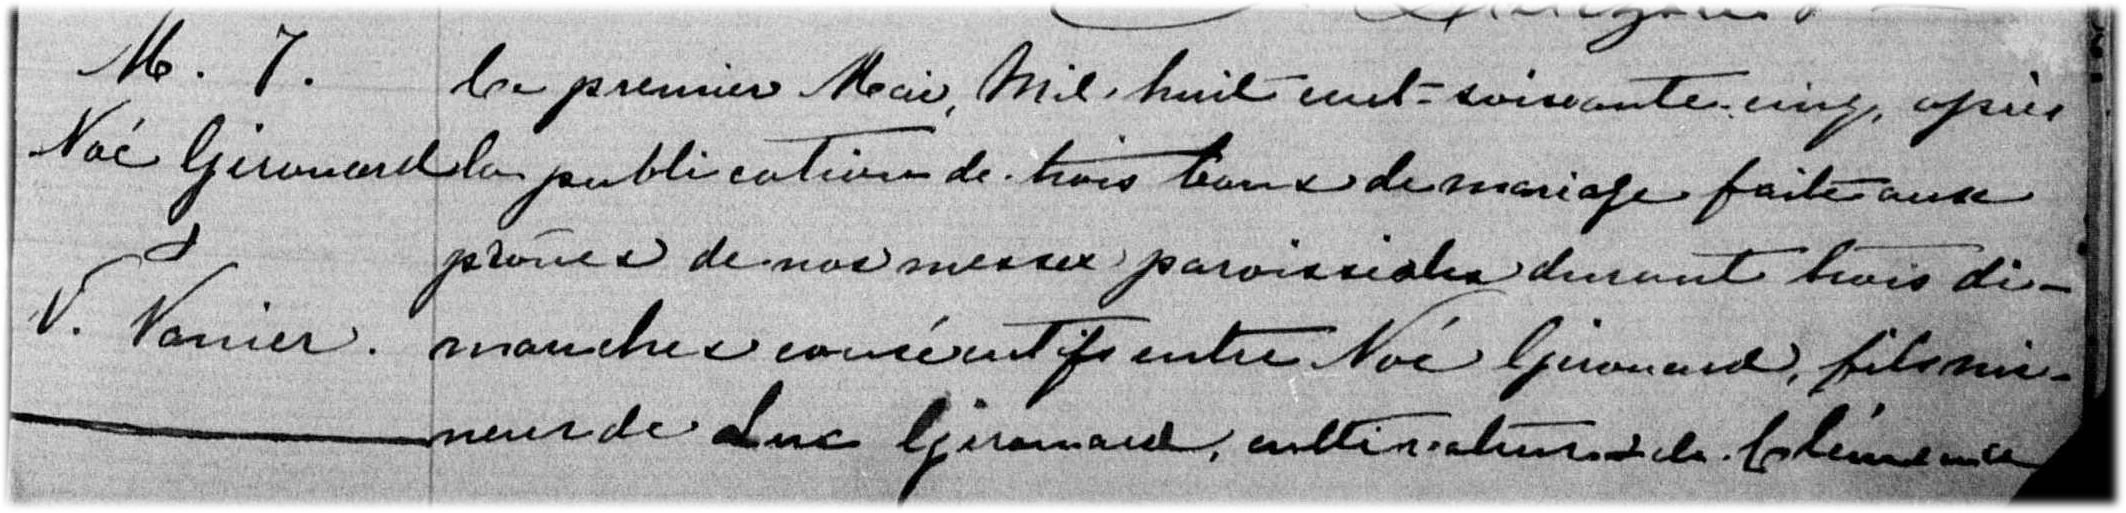 M. 7.
Noé Girouard
&
V. Vanier.
Le premier Mai, Mil-huit-cent-soixante-cinq, après
la publication de trois bans de mariage faite aux
prônes de nos messes paroissiales durant trois di-
manches consécutifs entre Noé Girouard, fils mi-
neur de Luc Girouard, cultivateur & de Clémence